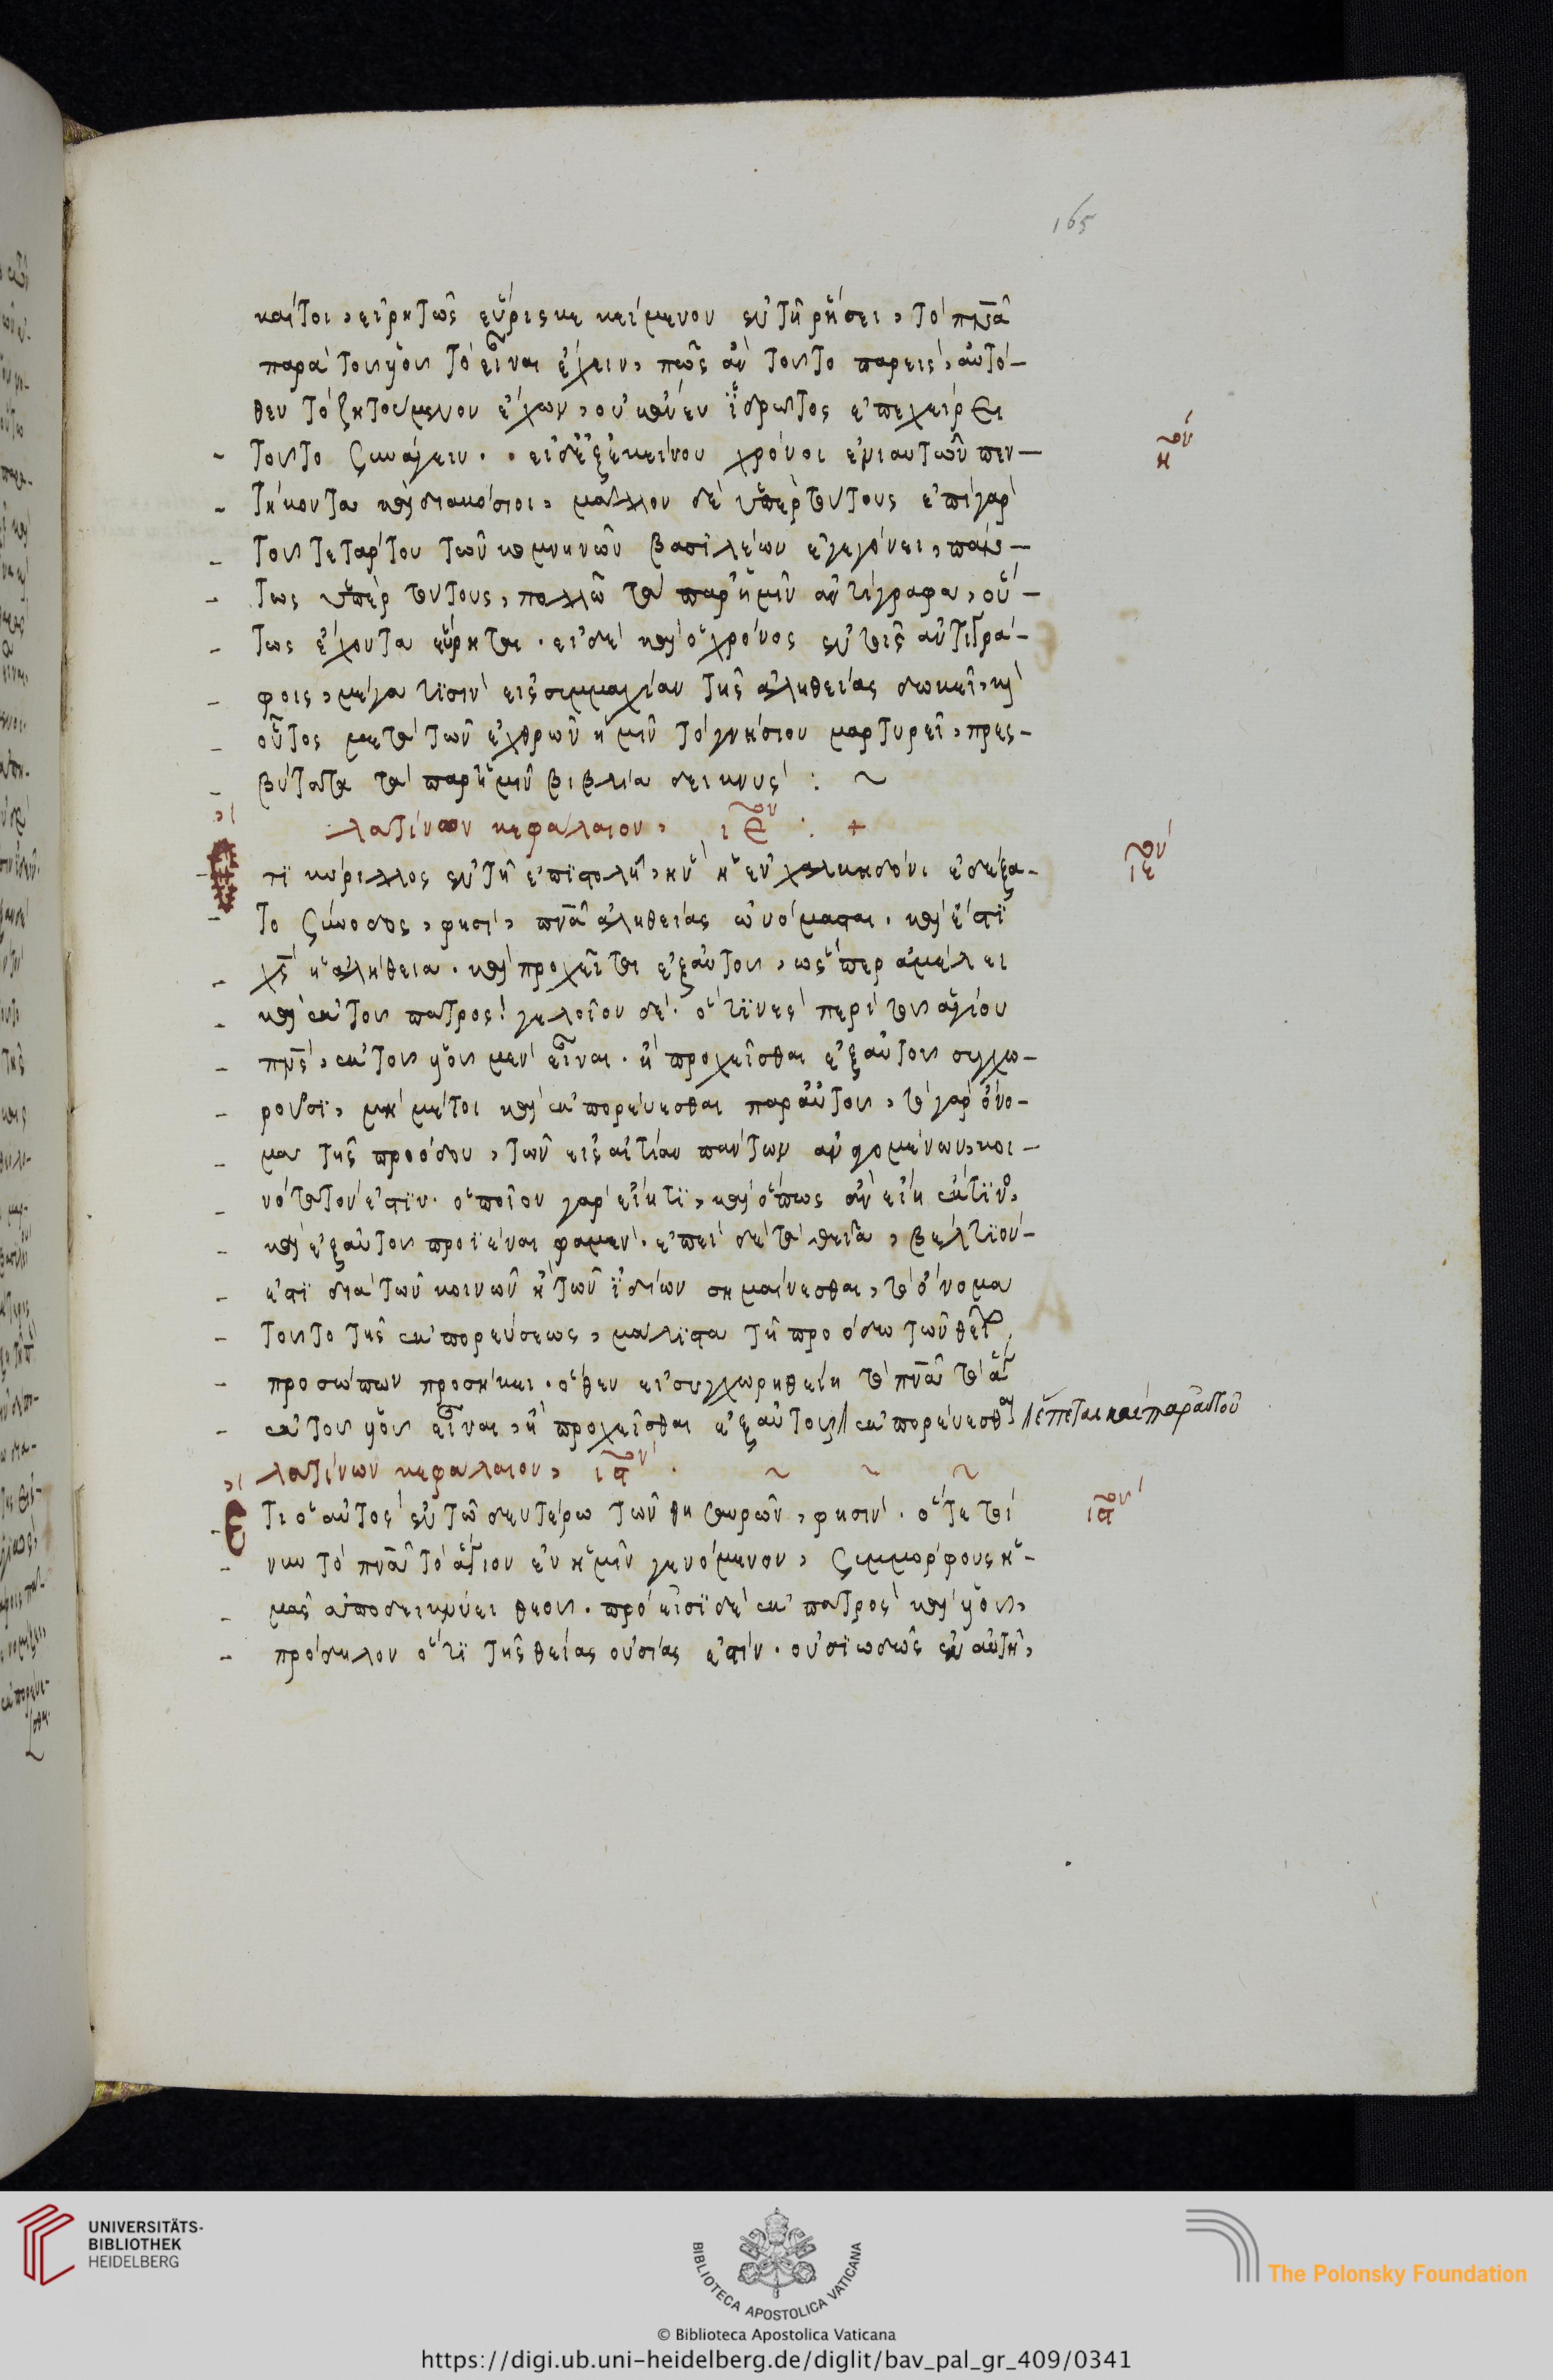 165
καίτοι, εἰρητῶς εὕρισκε κείμενον ἐν τῆ ρήσει, τὸ πνᾶ
παρὰ τοῦ υἱοῦ τὸ εἶναι ἔχειν, πῶς ἂν τοῦτο παρεὶς, αὐτό-
θεν τὸ ζητούμενον ἔχων, οὐκ ἄνευ ἱδρῶτος ἐπεχείρει
τοῦτο συνάγειν. εἰ δὲ ἐξ ἐκείνου χρόνοι ἐνιαυτῶν πεν-
κον
τήκοντα καὶ διακόσιοι, μᾶλλον δὲ ὑπὲρ τούτους ἐπὶ γὰρ
τοῦ τετάρτου τῶν κομνηνῶν βασιλέων ἐγεγόνει, πάν-
τως ὑπὲρ τούτους, πολλῶ τὰ παρ' ἡμῖν ἀντίγραφα, οὕ-
τως ἔχοντα εὕρηται. εἰ δὲ καὶ ὁ χρόνος ἐν τοῖς ἀντιγρά-
φοις, μέγα τισὶν εἰς συμμαχίαν τῆς ἀληθείας δοκεῖ, καὶ
οὗτος μετὰ τῶν ἐχθρῶν ἡμῖν τὸ γνήσιον μαρτυρεῖ, πρεσ-
βύτατα τὰ παρ' ἡμῖν βιβλία δεικνύς :~
λατίνων κεφάλαιον, ιεον : +
ιεον
Ὅτι κύριλλος ἐν τῆ ἐπιστολῆ, ἣν ἡ ἐν χαλκηδόνι ἐδέξα-
το σύνοδος, φησὶ, πνᾶ ἀληθείας ὠνόμασται. καὶ ἔστι
χς ἡ ἀλήθεια. καὶ προχεῖται ἐξ αὐτοῦ, ὥσπερ ἀμέλει
καὶ ἐκ τοῦ πατρός. γελοῖον δὲ. ὅτινες περὶ τοῦ ἁγίου
πνς, ἐκ τοῦ υἱοῦ μὲν εἶναι. ἢ προχεῖσθαι ἐξ αὐτοῦ συγχω-
ροῦσι, μὴ μέτοι καὶ ἐκπορεύεσθαι παρ' αὐτοῦ, τὸ γὰρ ὄνο-
μα τῆς προόδου, τῶν εἰς αἰτίαν πάντων ἀναγομένων, κοι-
νότατόν ἐστιν. ὁποῖον γὰρ εἴη τι, καὶ ὅπως ἂν εἴη ἔκ τινο,
καὶ ἐξ αὐτοῦ προϊέναι φαμέν. ἐπεὶ δὲ τὰ θεῖα, βέλτιον
ἐστι διὰ τῶν κοινῶν ἢ τῶν ἰδίων σημαίνεσθαι, τὸ ὄνομα
τοῦτο τῆς ἐκπορεύσεως, μάλιστα τῆ προόδω τῶν θείων
προσώπων προσήκει. ὅθεν εἰ συγχωρηθείη τὸ πνᾶ τὸ ἅγ
ἐκ τοῦ υἱοῦ εἶναι, ἢ προχεῖσθαι ἐξ αὐτοῦ // ἐκπορεύεσθαι // ἕπεται καὶ παρ' αὐτοῦ
λατίνων κεφάλαιον, ιςον . ~ ~ ~
ιςον
Ἔτι ὁ αὐτὸς ἐν τῶ δευτέρω τῶν θησαυρῶν, φησὶν. ὅτε τοί
νυν τὸ πνᾶ τὸ ἅγιον ἐν ἡμῖν γενόμενον, συμμόρφους ἡ-
μᾶς ἀποδεικνύει θεοῦ. πρόεισι δὲ ἐκ πατρὸς καὶ υἱοῦ,
πρόδηλον ὅτι τῆς θείας οὐσίας ἐστὶν. οὐσιωδῶς ἐν αὐτῆ,
UNIVERSITÄTS-
BIBLIOTHEK
HEIDELBERG
BIBLIOTECA APOSTOLICA VATICANA
The Polonsky Foundation
© Biblioteca Apostolica Vaticana
https://digi.ub.uni-heidelberg.de/diglit/bav_pal_gr_409/0341